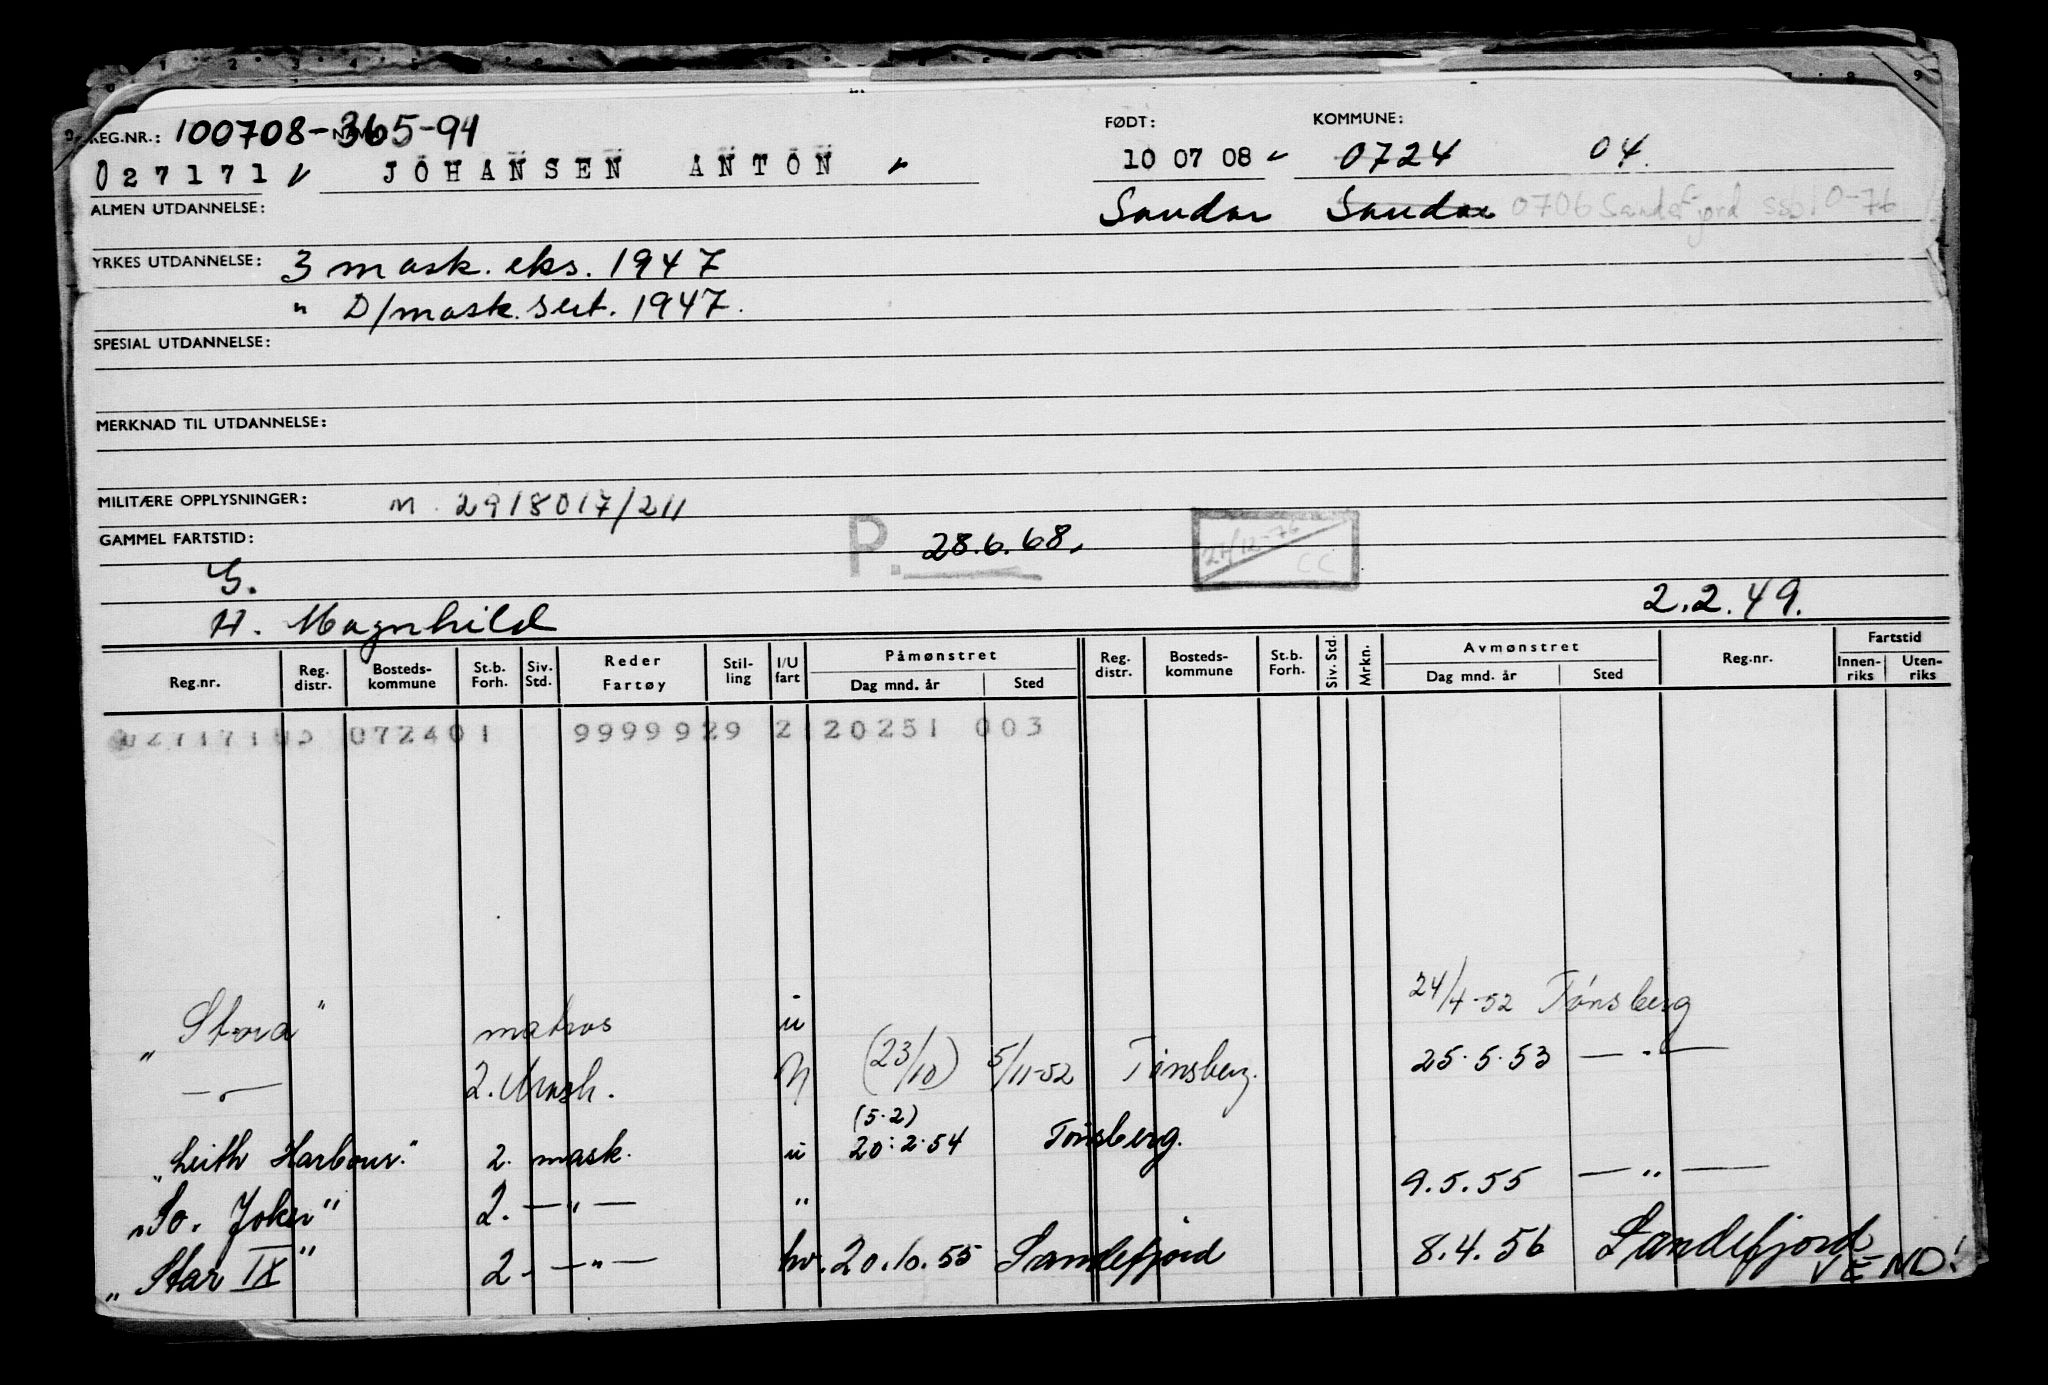 REG.NR.: 100708-365-94 FØDT: KOMMUNE:
027171 JOHANSEN ANTON 10 07 08 0724 04.
ALMEN UTDANNELSE: Sandar Sandar 0706 Sandefjord
YRKES UTDANNELSE: 3 mask. eks. 1947
" D/mask. sert. 1947.
SPESIAL UTDANNELSE:
MERKNAD TIL UTDANNELSE:
MILITÆRE OPPLYSNINGER: M. 2918017/211
GAMMEL FARTSTID: P. 28.6.68. 21/12-76 CC
G.
H. Magnhild 2.2.49.
Reg.nr. Reg. distr. Bosteds- kommune St.b. Forh. Siv. Std. Reder Fartøy Stil- ling I/U fart Påmønstret Dag mnd. år Sted Reg. distr. Bosteds- kommune St.b. Forh. Siv. Std. Mrkn. Avmønstret Dag mnd. år Sted Reg.nr. Fartstid Innen- riks Uten- riks
072401 9999929 2 20251 003
"Stora" matros u 24/4-52 Tønsberg
—"— 2. Mask. (23/10) 5/11-52 Tønsberg. 25.5.53 —"—
(5.2)
"Leith Harbour." 2. mask. u 20.2.54 Tønsberg.
"So. Joker" 2. —"— " 9.5.55 —"—
"Star IX" 2. —"— hv. 20.10.55 Sandefjord 8.4.56 Sandefjord
VEND!